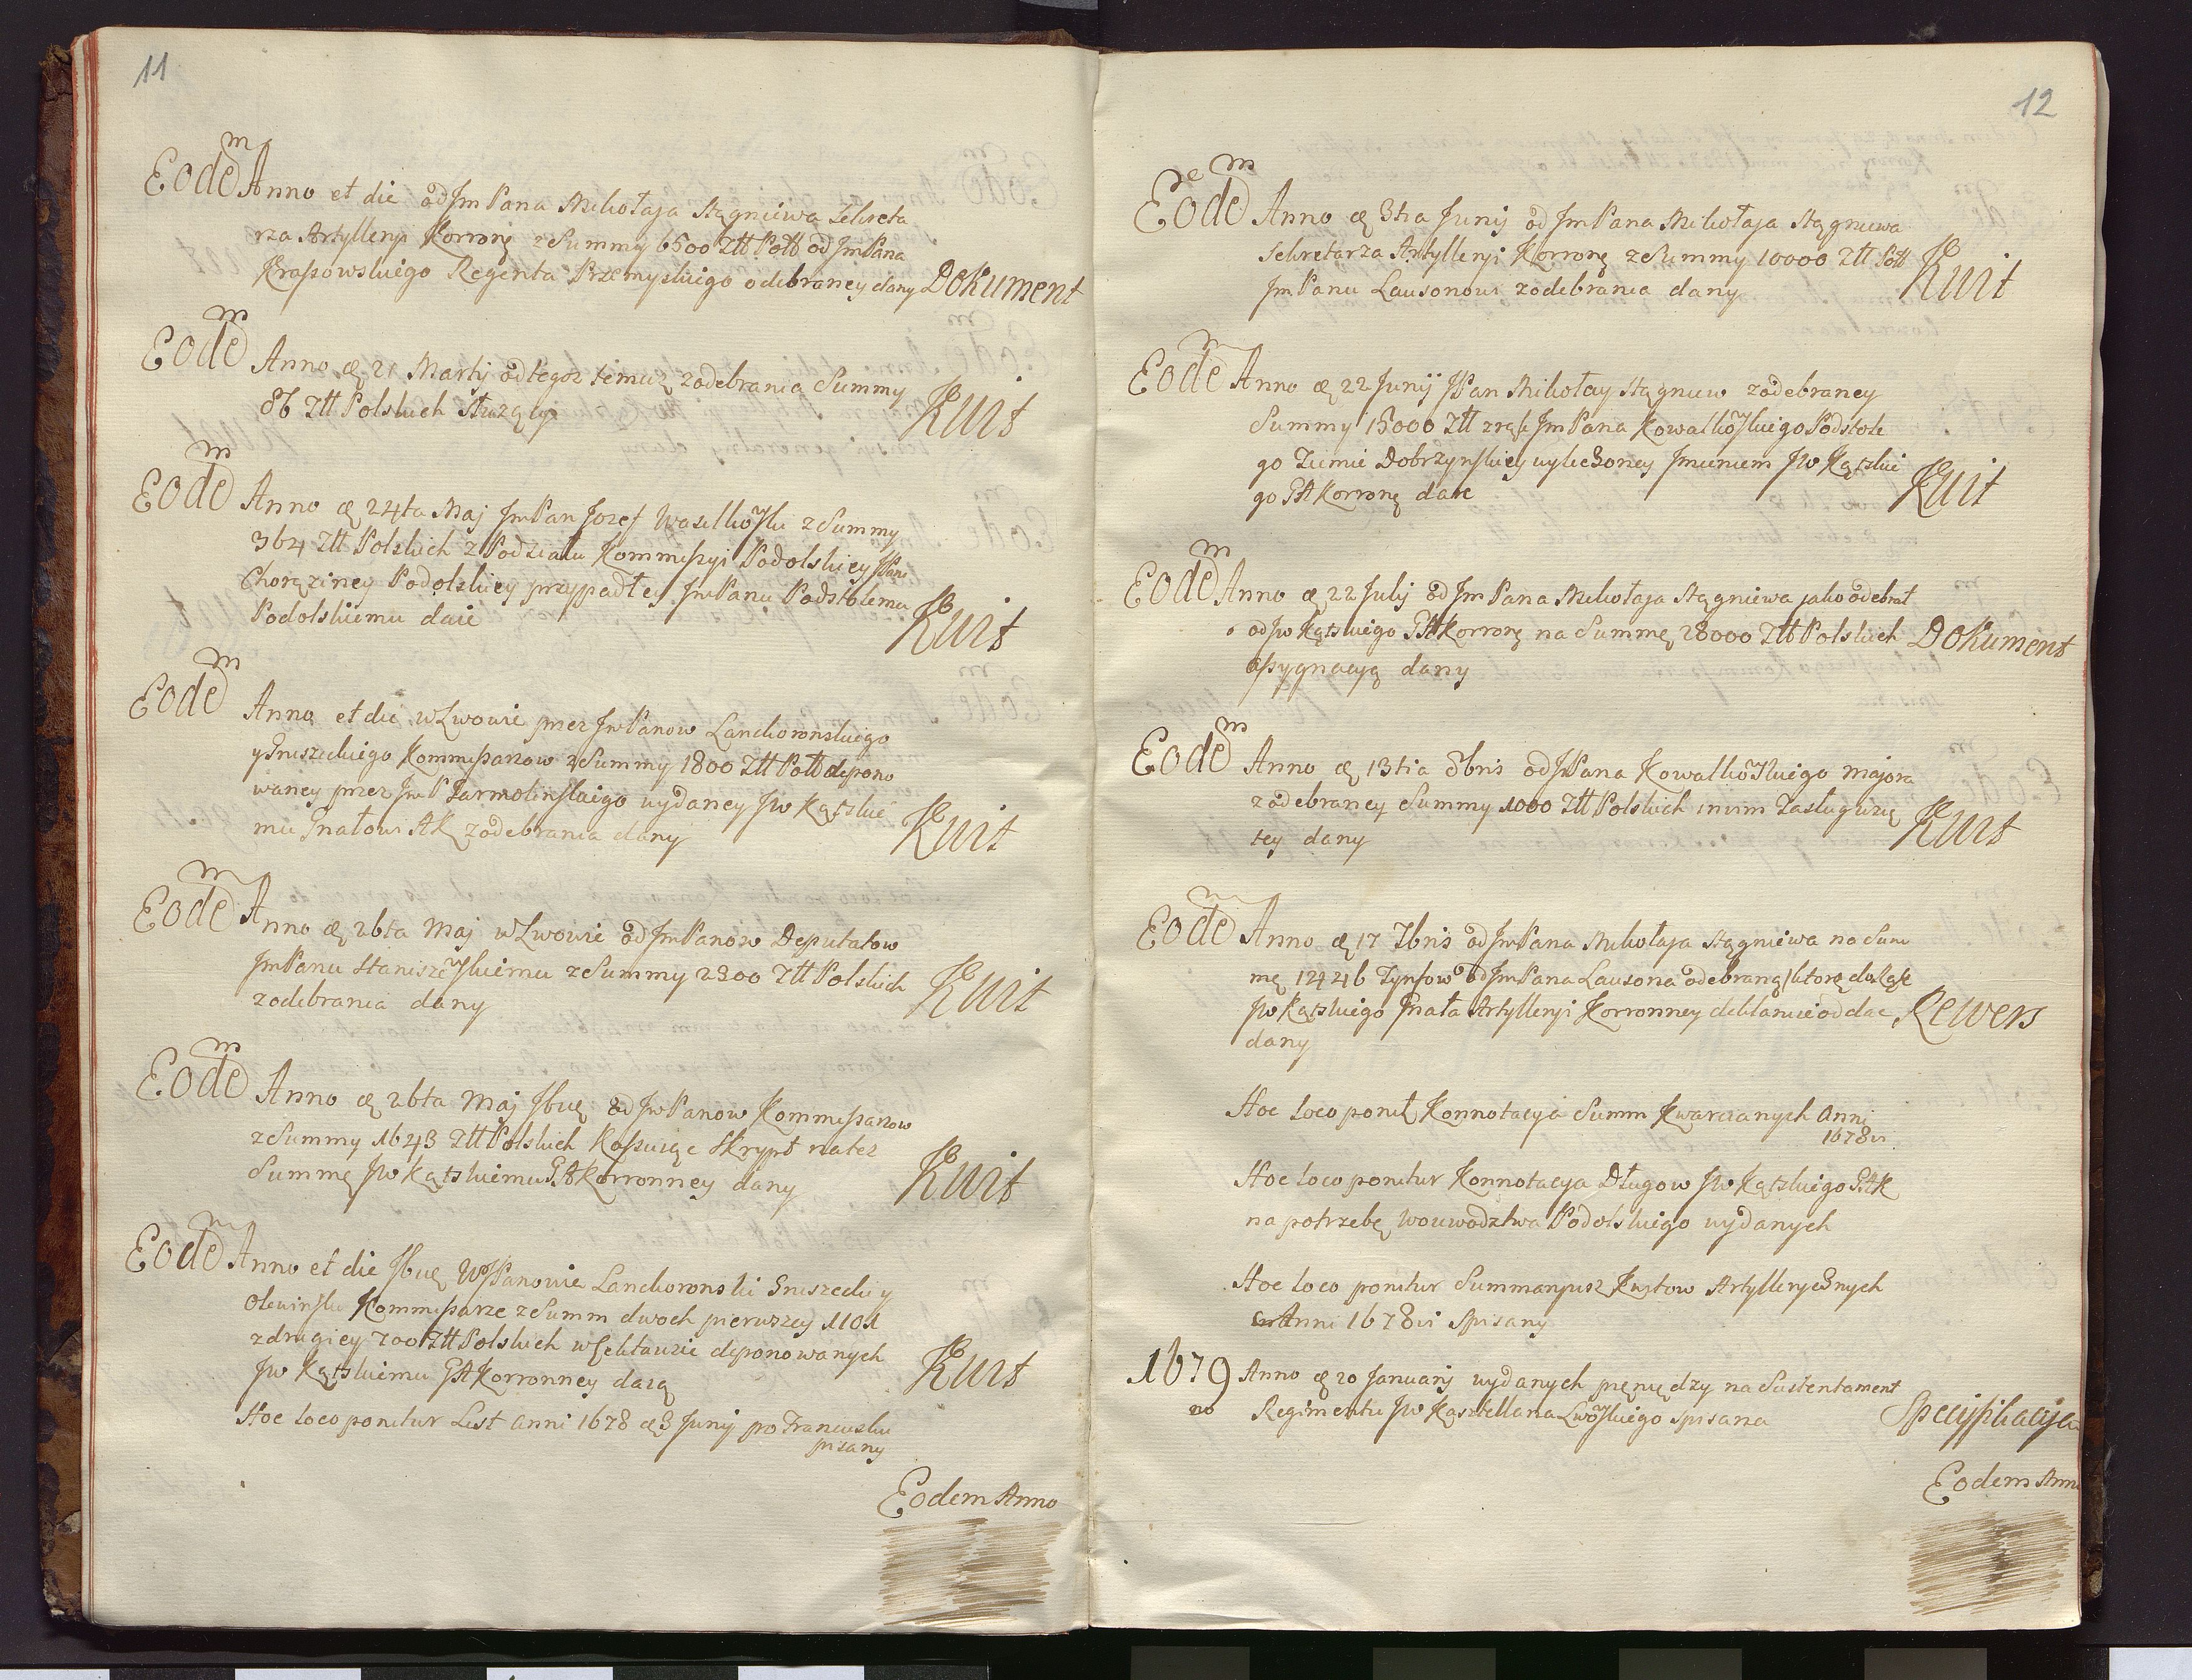 11
Eodem Anno et die od Jm Pana Mikołaja Stągniewa Sekreta
rza Artylleryi Korronę z Summy 6500 Ztt Poltt od Jm Pana
Krassowskiego Regenta Przemyskiego odebraney dany Dokument
Eodem Anno æ 21 Martij od tegoz temuz zodebrania Summy
86 Ztt Polskich służący Kwit
Eodem Anno æ 24ta Maj Jm Pan Jozef Wasilkowski z Summy
364 Ztt Polskich z Podziału Kommissyi Podolskiey JPani
Chorąziney Podolskiey przypadłey Jm Panu Podstolemu
Podolskiemu daie Kwit
Eodem Anno et die w Lwowie przez Jm Panow Lanckoronskiego
y Gruszeckiego Kommissarzow z Summy 1800 Ztt Poltt depono
waney przez Jm P Jarmolinskiego wydaney Jw Kątskie
mu Gnałowi AK zodebrania dany Kwit
Eodem Anno æ 26ta Maj w Lwowie od Jm Panow Deputatow
Jm Panu Staniszewskiemu z Summy 2300 Ztt Polskich
zodebrania dany Kwit
Eodem Anno æ 26ta Maj Jbuę od Jw Panow Kommissarzow
z Summy 1643 Ztt Polskich Kassuiąc Skrypt natez
Summę Jw Kątskiemu GA Korronney dany Kwit
Eodem Anno et die Jbuę WJPanowie Lanckoronski Gruszecki y
Olewinski Kommissarze z Summ dwoch pierwszey 1101
z drugiey 700 Ztt Polskich w Sekłauzie deponowanych
Jw Kątskiemu GA Korronney daią Kwit
Hoc loco ponitur List anni 1678 æ 3 Junij po Francusku
pisany
Eodem Anno
12
Eodem Anno æ 3tia Junij od Jm Pana Mikołaja Stągniewa
Sekretarza Artylleryi Korronę z Summy 10000 Ztt Poltt
Jm Panu Lausonowi zodebrania dany Kwit
Eodem Anno æ 22 Junij JPan Mikołay Stągniew zodebraney
Summy 15000 Ztt z rąk Jm Pana Kowalkowskiego Podstole
go Ziemie Dobrzynskiey wyliczoney Jmieniem Jw Kątskie
go GA Korronę daie Kwit
Eodem Anno æ 22 Julij od Jm Pana Mikołaja Stągniewa jako odebrał
od Jw Kątskiego GA Korronę na Summę 28000 Ztt Polskich Dokument
assygnacyą dany
Eodem Anno æ 13tia 8bris od JPana Kowalkowskiego Majora
zodebraney Summy 1000 Ztt Polskich in vim Zasług wzię
tey dany Kwit
Eodem Anno æ 17 Xbris od Jm Pana Mikołaja Stągniewa na Sum
mę 12446 Tynfow od Jm Pana Lausona odebraną ktorę do Rąk
Jw Kątskiego Gnała Artylleryi Korronney deklaruie oddac Rewers
dany
Hoc loco ponit Konnotacya Summ Kwarcianych Anni
1678vi
Hoc loco ponitur Konnotacya Długow Jw Kątskiego GAK
na potrzebę Woiewodztwa Podolskiego wydanych
Hoc loco ponitur Summaryusz Kwitow Artyllerycznych
Anni 1678vi Spisany
1679no Anno æ 20 Januarij wydanych pieniędzy na Sustentament
Regimentu Jw Kasztellana Lwowskiego spisana Specyffikacyja
Eodem Anno